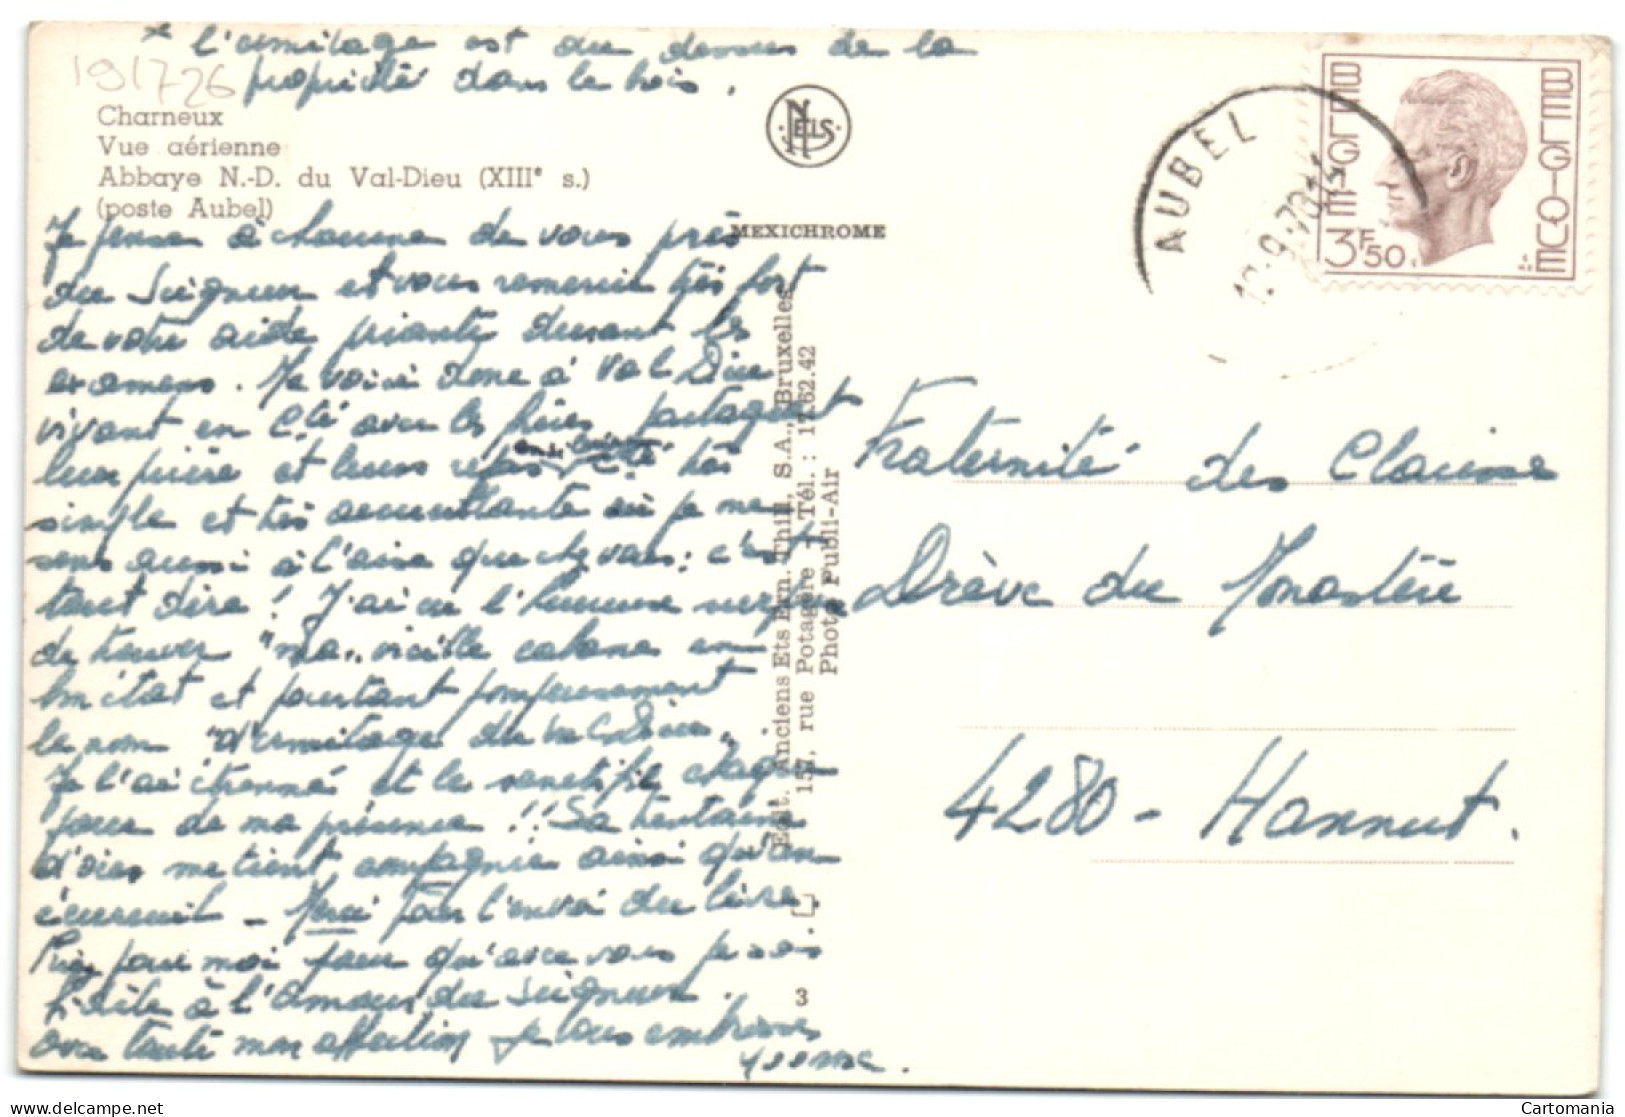 * l'ermitage est au dessus de la
propriété dans le bois.
191726
Charneux
Vue aérienne
Abbaye N.-D. du Val-Dieu (XIIIe s.)
(poste Aubel)
NELS
MEXICHROME
AUBEL
BELGIE BELGIQUE
3F50
Je pense à chacune de vous près
du Seigneur et vous remercie très fort
de votre aide priante durant les
examens. Me voici donc à Val Dieu
vivant en Cté avec les frères, partageant
leur prière et leurs repas très
simple et très accueillante où je me
sens aussi à l'aise que chez vous: c'est
tout dire! J'ai eu l'heureuse surprise
de trouver "ma" vieille cabane en
bon état et portant pompeusement
le nom "d'ermitage du Val Dieu".
Je l'ai étrennée et le sanctifie chaque
jour de ma présence!! Sa trentaine
d'oies me tient compagnie ainsi qu'un
écureuil - Merci pour l'envoi du livre.
Priez pour moi pour qu'avec vous je sois
fidèle à l'amour du Seigneur.
avec toute mon affection je vous embrasse
Yvonne.
Edit. Anciens Ets Ern. Thill, S.A., Bruxelles
157, rue Potagère - Tél.: 17.62.42
Photo Publi-Air
3
Fraternité des Clarisse
Drève du Monastère
4280 - Hannut.
Cartomania